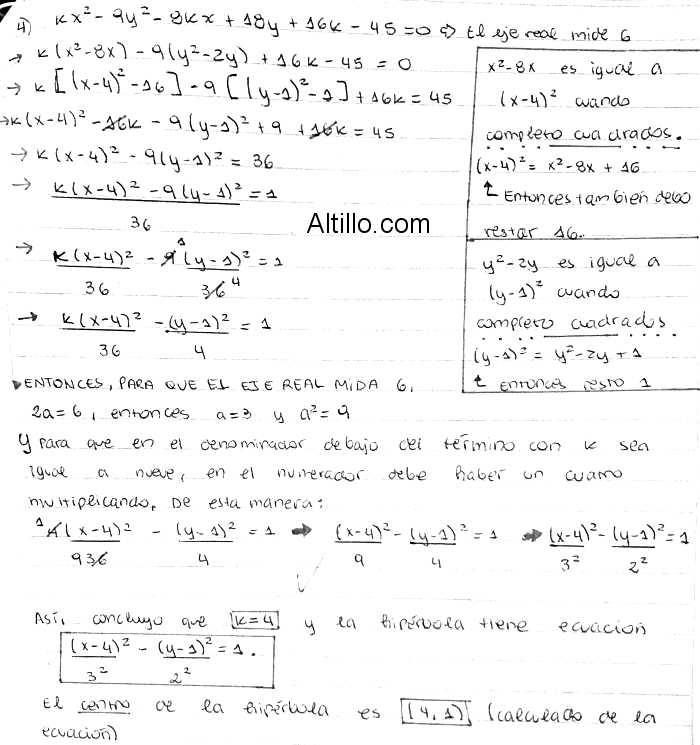 4) kx² - 9y² - 8kx + 18y + 16k - 45 = 0 ⇨ El eje real mide 6
→ k(x² - 8x) - 9(y² - 2y) + 16k - 45 = 0
→ k[(x-4)² - 16] - 9[(y-1)² - 1] + 16k = 45
→ k(x-4)² - 16k - 9(y-1)² + 9 + 16k = 45
→ k(x-4)² - 9(y-1)² = 36
→ k(x-4)² - 9(y-1)² = 1
36
→ k(x-4)² - 9 1 (y-1)² = 1
36 36 4
→ k(x-4)² - (y-1)² = 1
36 4
x² - 8x es igual a
(x-4)² cuando
completo cuadrados.
(x-4)² = x² - 8x + 16
↑ Entonces tambien debo
restar 16.
y² - 2y es igual a
(y-1)² cuando
completo cuadrados.
(y-1)² = y² - 2y + 1
↑ entonces resto 1
Altillo.com
▸ENTONCES, PARA QUE EL EJE REAL MIDA 6,
2a = 6, entonces a = 3 y a² = 9
y para que en el denominador debajo del término con k sea
igual a nueve, en el numerador debe haber un cuatro
multiplicando. De esta manera:
1 4(x-4)² - (y-1)² = 1 ➡ (x-4)² - (y-1)² = 1 ➡ (x-4)² - (y-1)² = 1
9 36 4 9 4 3² 2²
Así, concluyo que k=4 y la hipérbola tiene ecuación
(x-4)² - (y-1)² = 1.
3² 2²
El centro de la hipérbola es (4,1) (calculado de la
ecuación)